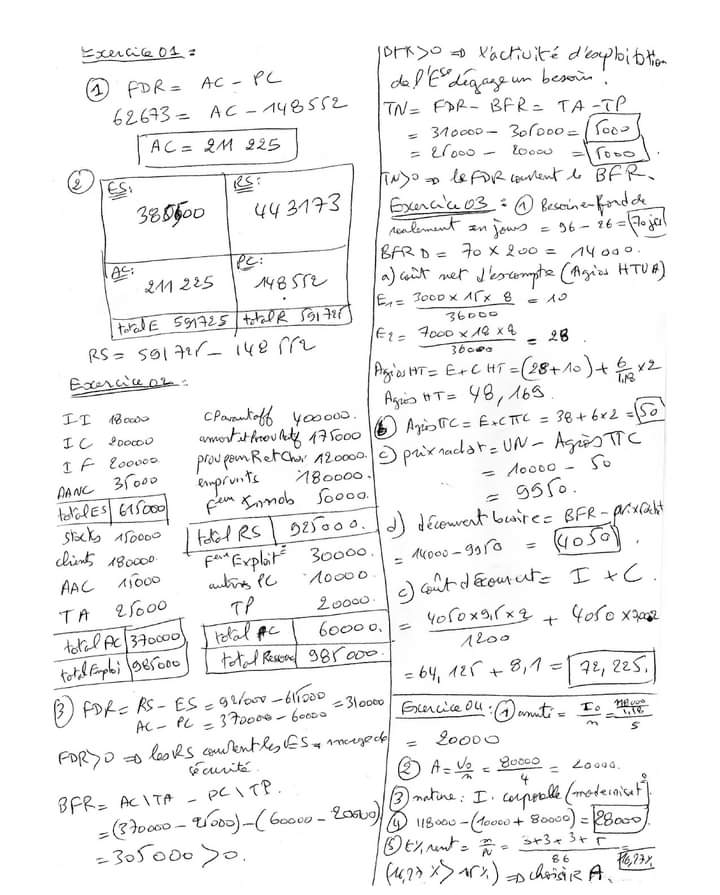 Exercice 01 :
① FDR = AC - PC
62673 = AC - 148552
AC = 211 225
②
ES: RS:
380500 443173
AC: PC:
211 225 148552
total E 591725 total R 591725
RS = 591725 - 148 552
Exercice 02 :
I I 180000 CP avant aff 400000.
I C 200000 amort et Prov Actif 175000
I F 200000 prov pour Ret Char 120000.
AANC 35000 emprunts 180000.
total ES 615000 Feurs Immob 50000.
stocks 150000 total RS 925000.
clients 180000. Feurs Exploit° 30000.
AAC 15000 autres PC 10000.
TA 25000 TP 20000.
total AC 370000 total AC 60000.
total Emploi 985000 total Ressou 985000.
③ FDR = RS - ES = 925000 - 615000 = 310000
AC - PC = 370000 - 60000
FDR > 0 ⇒ les RS couvrent les ES = marge de
sécurité.
BFR = AC\TA - PC\TP.
= (370000 - 25000) - (60000 - 20000)
= 305000 > 0.
BFR > 0 ⇒ l'activité d'exploitation
de l'Ese dégage un besoin.
TN = FDR - BFR = TA - TP
= 310000 - 305000 = 5000
= 25000 - 20000 = 5000
TN > 0 ⇒ le FDR couvrent le BFR.
Exercice 03 : ① Besoin en fond de
roulement en jours = 96 - 26 = 70 jrs
BFR D = 70 x 200 = 14000.
a) coût net d'escompte (Agios HTVA)
E1 = 3000 x 15 x 8 / 36000 = 10
E2 = 7000 x 18 x 8 / 36000 = 28
Agios HT = E + C HT = (28 + 10) + 6/1,18 x 2
Agios HT = 48,169.
b) Agios TTC = E x C TTC = 38 + 6 x 2 = 50
c) prix rachat = VN - Agios TTC
= 10000 - 50
= 9950.
d) découvert bcaire = BFR - prix rachat
= 14000 - 9950 = 4050
c) coût découvert = I + C.
= 4050 x 9,5 x 2 / 1200 + 4050 x
= 64,125 + 8,1 = 72,225.
Exercice 04 : ① annuité = I0/n = /1,18 / 5
= 20000
② A = V0/n = 80000/4 = 20000.
③ nature : I. corporelle (modernisat°)
④ 118000 - (10000 + 80000) = 28000
⑤ t% rent =
(16,27% > 15%) ⇒ choisir A.